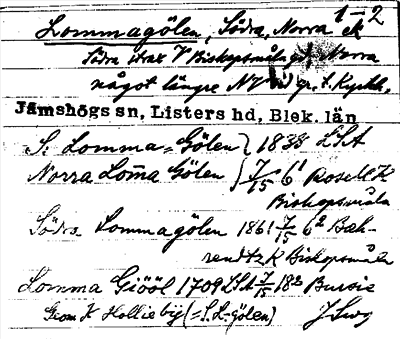 1–2
Lommagölen, Södra, Norra ek
Södra strax V Biskopsmåla gd, Norra
något längre NV vid gr. t. Kyrkh.
Jämshögs sn, Listers hd, Blek. län
S: Lomma=Gölen } 1838 LSA
Norra Lom̅a Gölen } 7/15 6¹ Rosell K
Biskopsmåla
Södra Lommagölen 1861 7/15 6² Bah-
rendtz K Biskopsmåla
Lomma Giööl 1709 LSA 7/15 18² Bursie
Geom K Hollie byj (= S. L.-gölen)